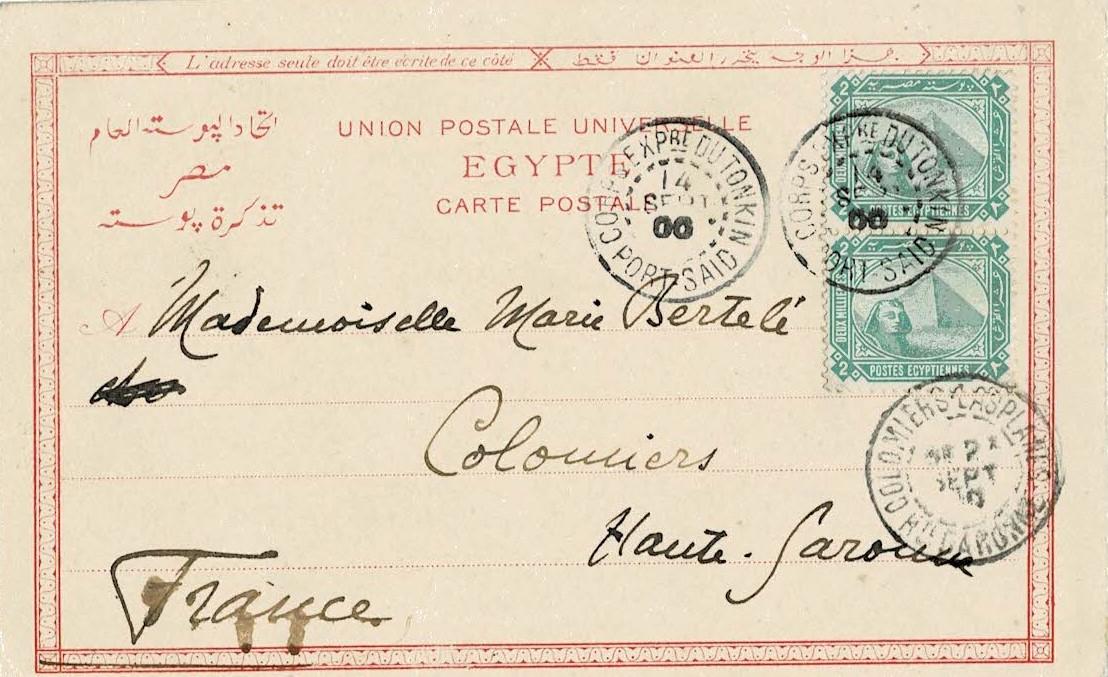 L'adresse seule doit être écrite de ce côté
هذا الوجه يتحرر العنوان فقط
اتحاد البوسته العام
مصر
تذكرة بوسته
UNION POSTALE UNIVERSELLE
EGYPTE
CARTE POSTALE
CORPS EXPRE DU TONKIN
14
SEPT
00
PORT-SAID
CORPS EXPRE DU TONKIN
14
00
PORT-SAID
2
بوسته مصرية
DEUX MILL
POSTES EGYPTIENNES
2
بوسته مصرية
DEUX MILL
2 POSTES EGYPTIENNES
A Mademoiselle Marie Bertelé
Colomiers
Haute-Garonne
France
COLOMIERS-LASPLANES
SEPT
HTE GARONNE